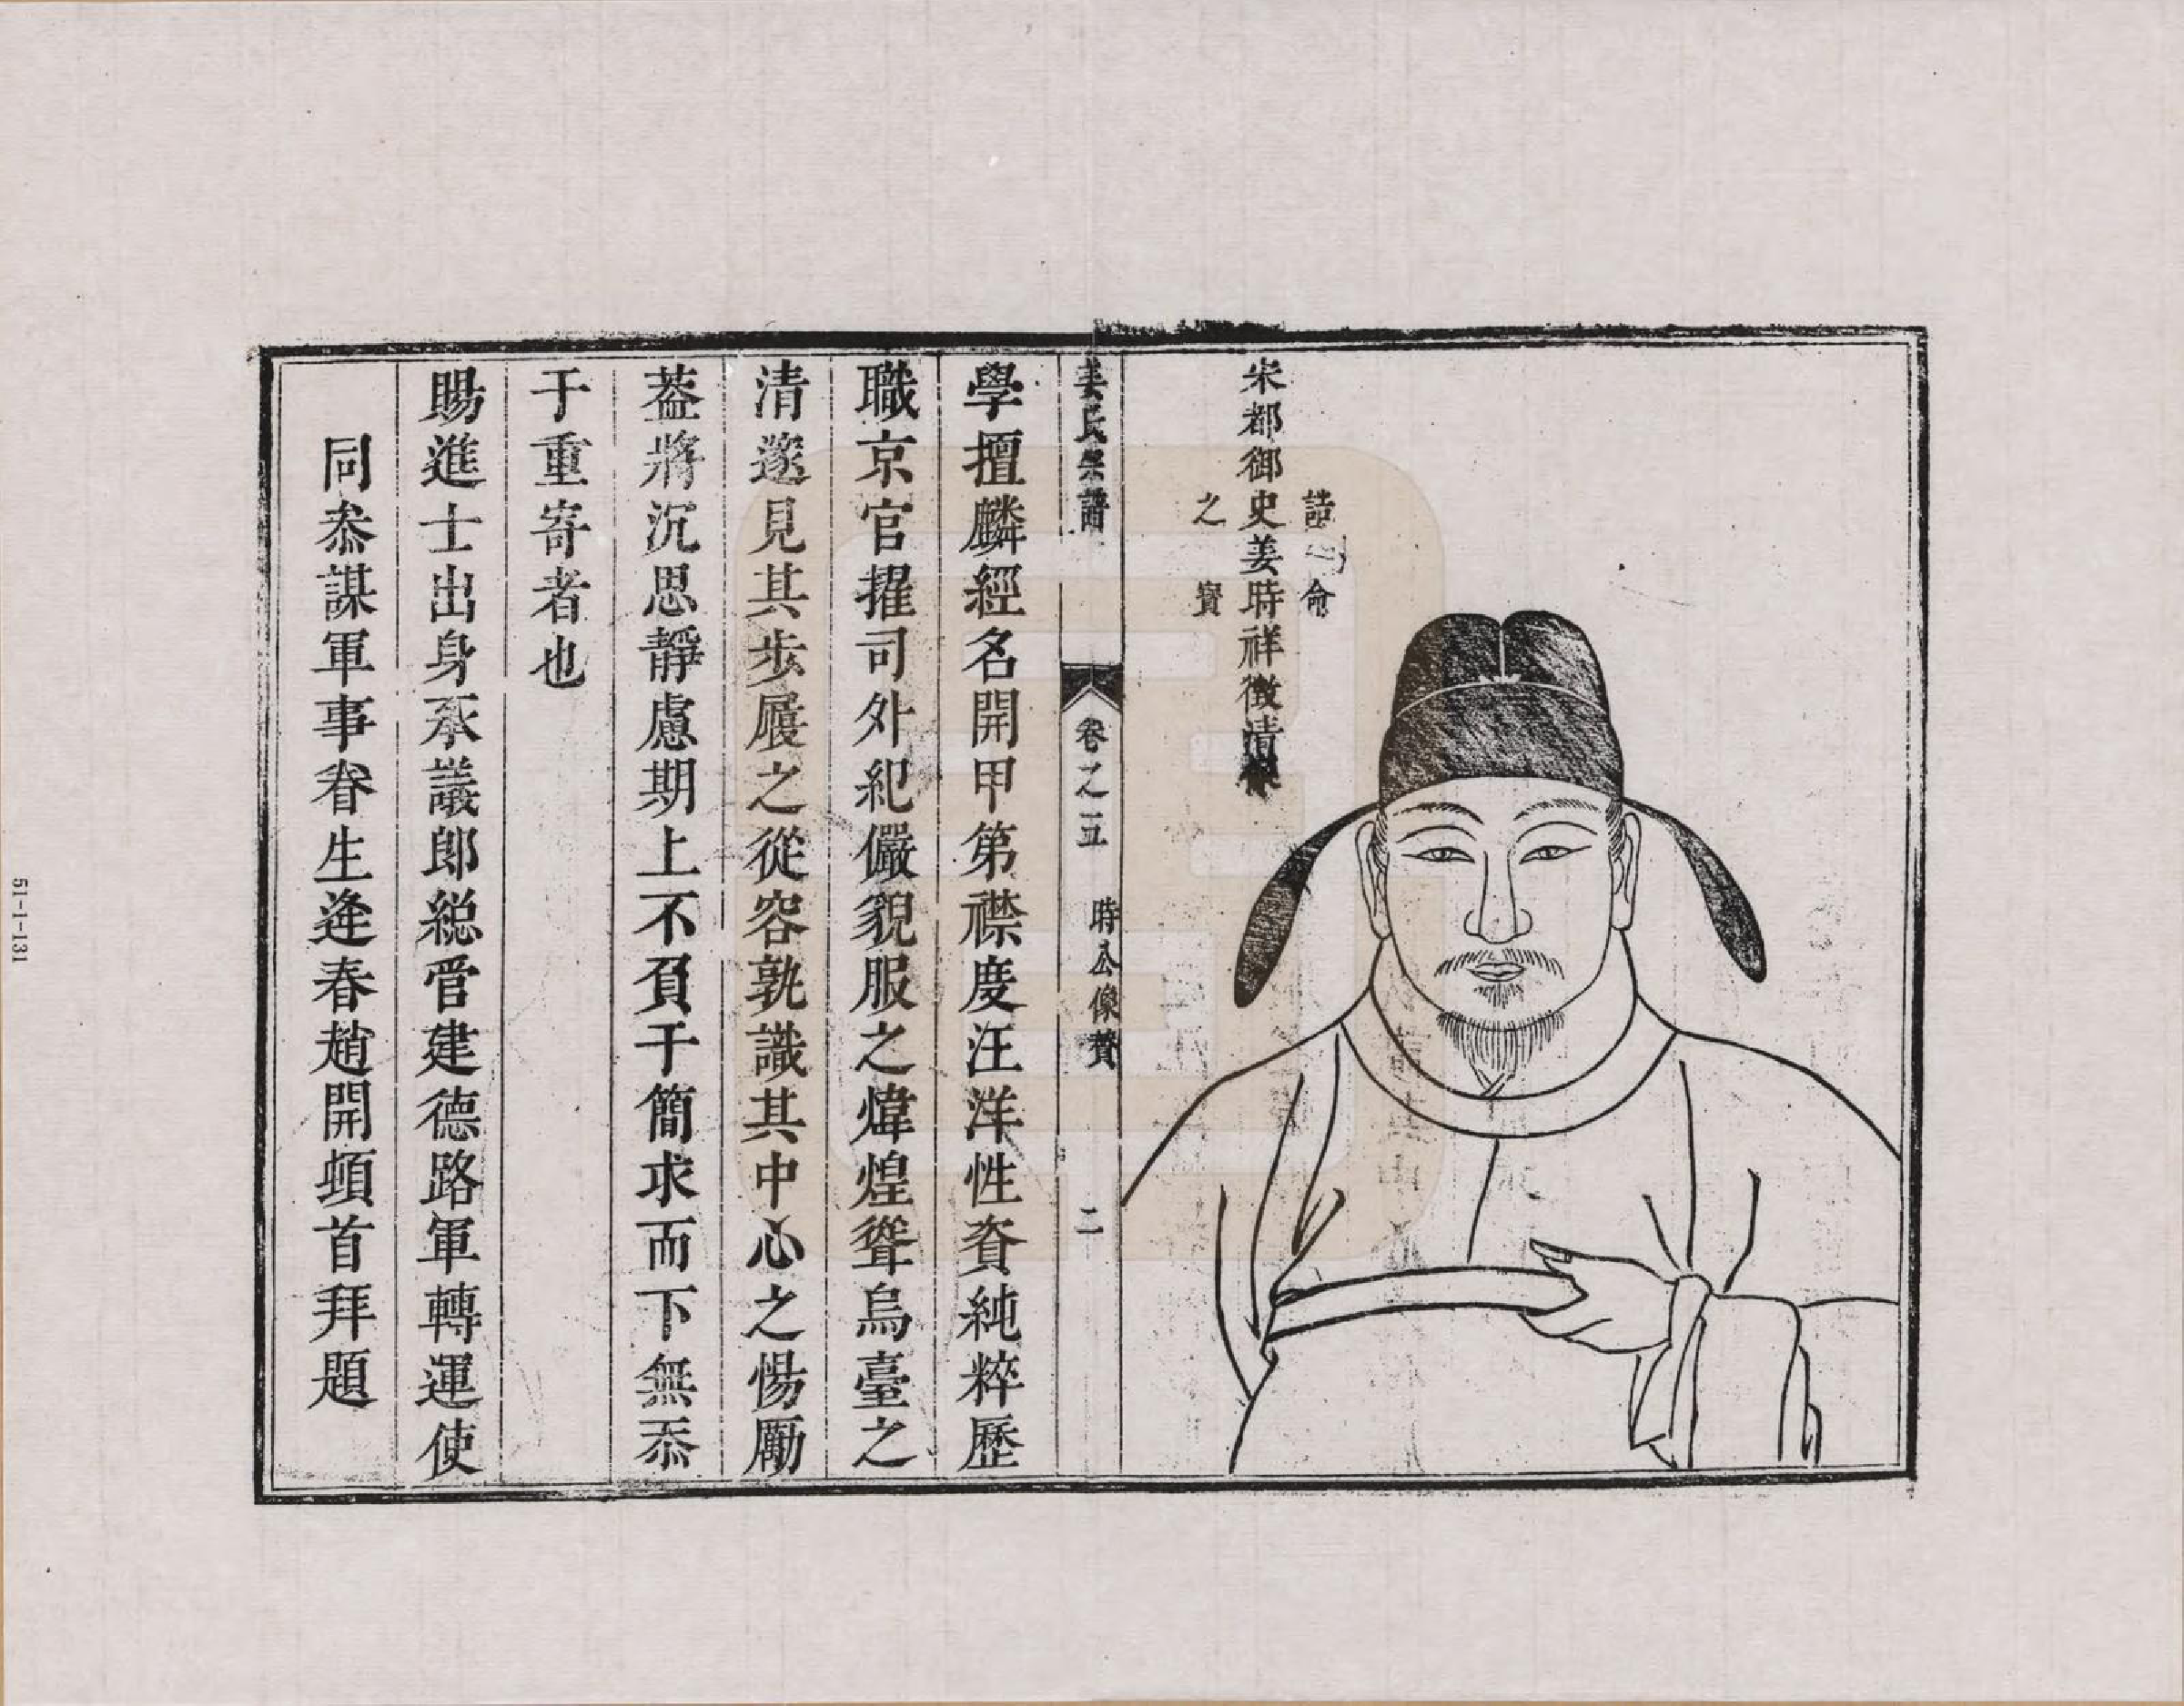 誥命
宋都御史姜時祥徵清像
之寶
姜氏宗譜 卷之五 時公像贊 二
學擅麟經名開甲第襟度汪洋性資純粹歷
職京官擢司外紀儼貌服之煒煌聳烏臺之
清邃見其步履之從容孰識其中心之惕勵
葢將沉思靜慮期上不負于簡求而下無忝
于重寄者也
賜進士出身承議郎緫管建德路軍轉運使
同叅謀軍事眷生逄春趙開頓首拜題
51-1-131